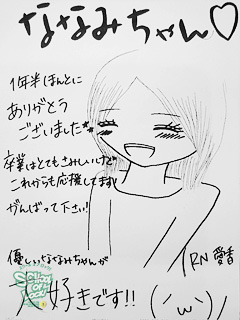 ななみちゃん♡
1年半ほんとに
ありがとう
ございました**
卒業はとてもさみしいけど
これからも応援してます!
がんばって下さい!
優しいななみちゃんが
大好きです!!(´ω`)ノ
RN 愛香